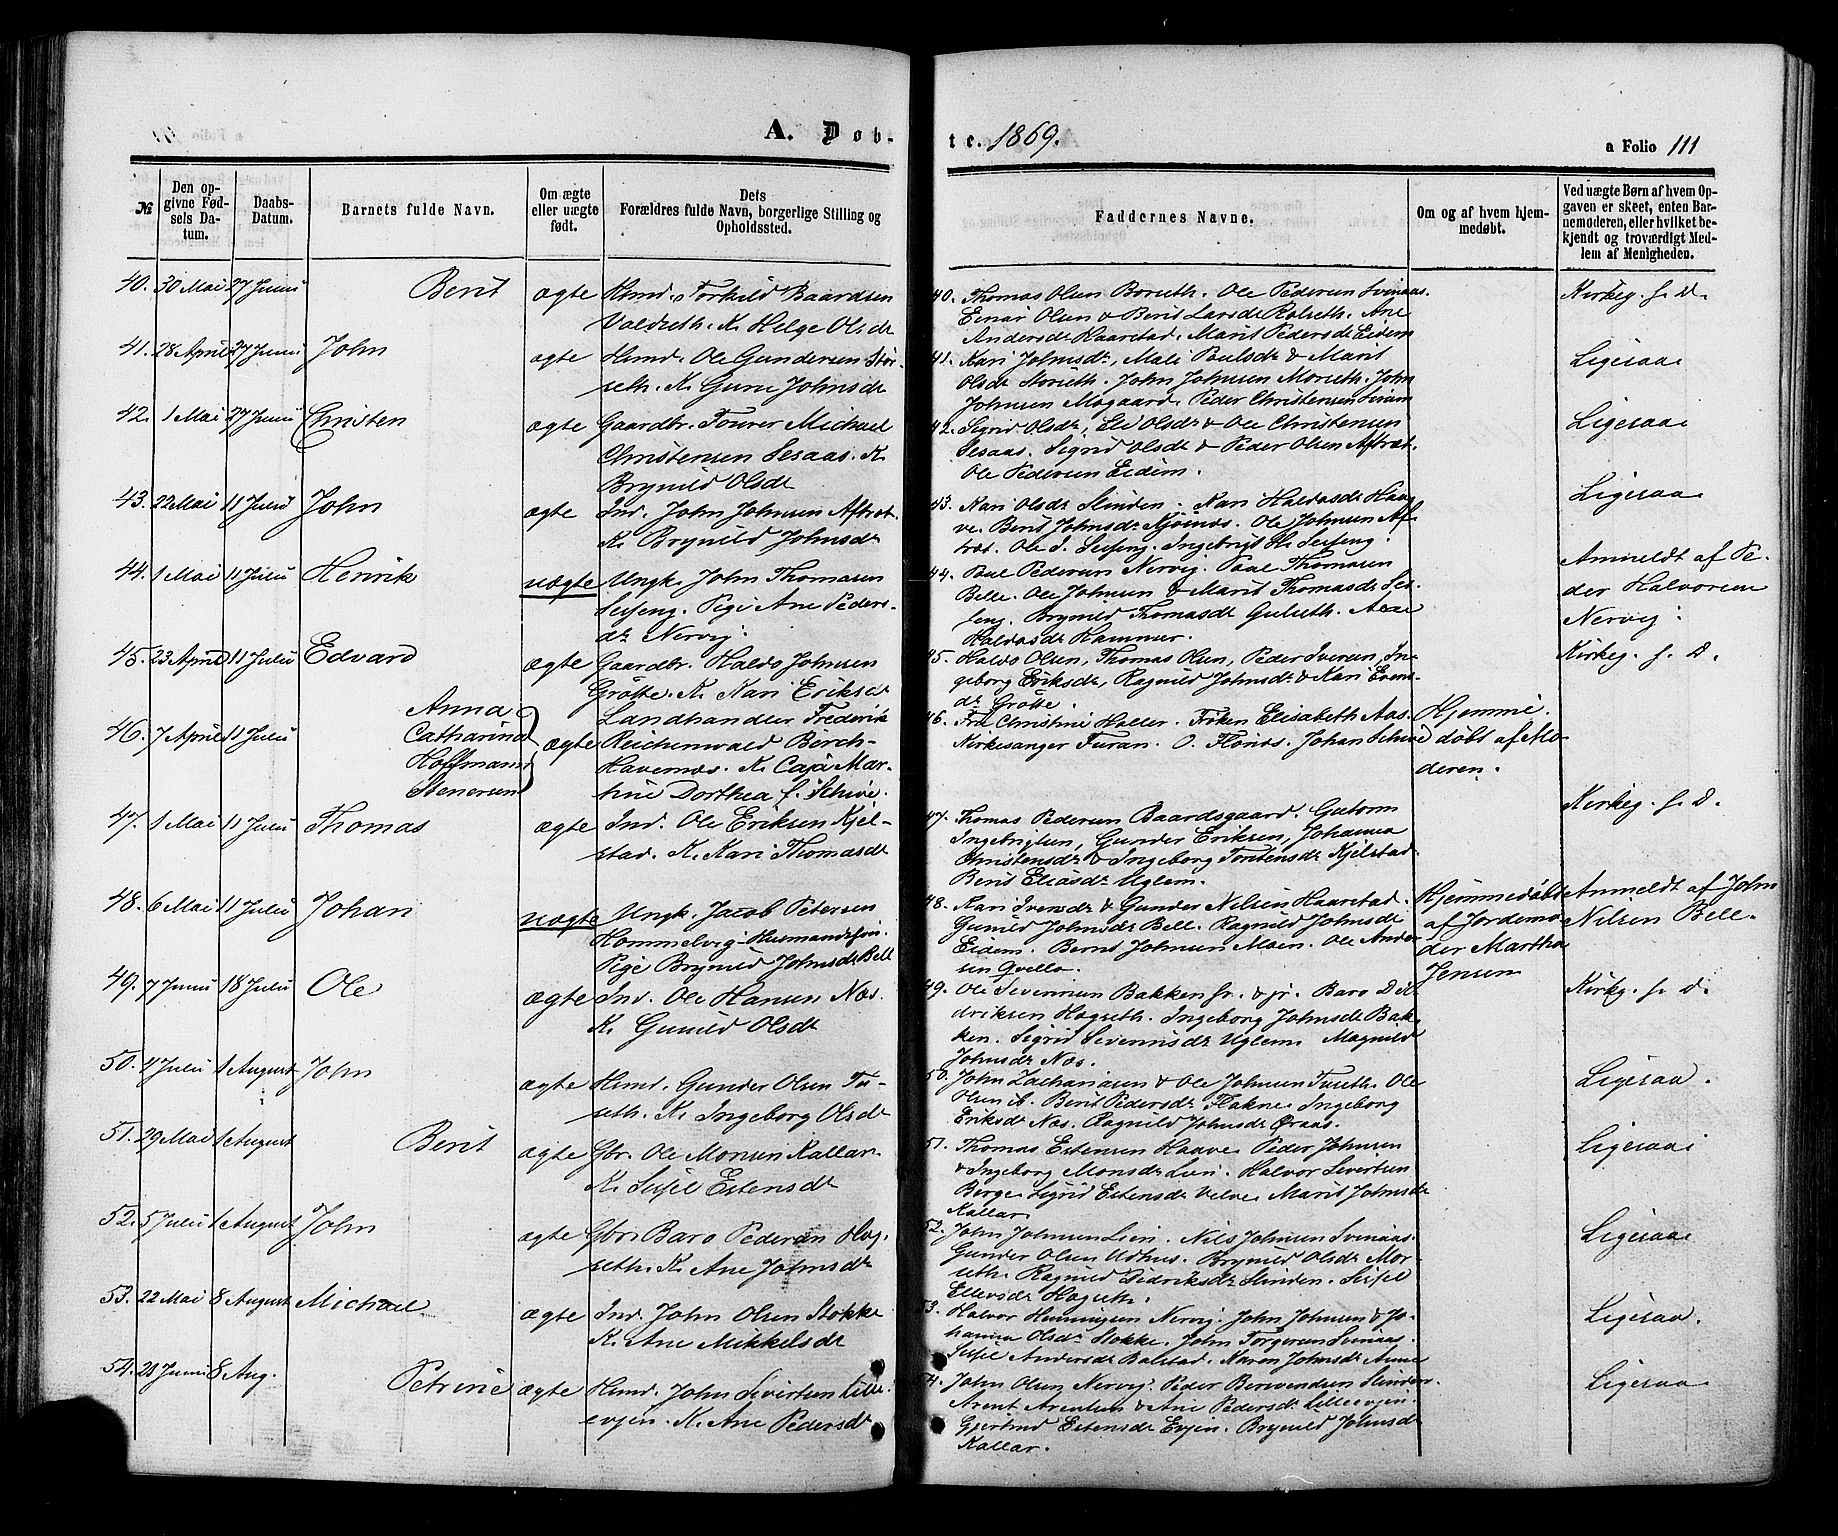 A. Døbte. 1869.
a Folio 111
№
Den opgivne Fødsels Datum.
Daabs-Datum.
Barnets fulde Navn.
Om ægte eller uægte født.
Dets Forældres fulde Navn, borgerlige Stilling og Opholdssted.
Faddernes Navne.
Om og af hvem hjemmedøbt.
Ved uægte Børn af hvem Opgaven er skeet, enten Barnemoderen, eller hvilket bekjendt og troværdigt Medlem af Menigheden.
40. 30 Mai 27 Juni Berit ægte Husmd. Torkild Baardsen
Valdseth. K. Helge Olsdr
40. Thomas Olsen Borseth. Ole Pedersen Svinaas.
Einar Olsen & Berit Larsdr Rolseth. Ane
Andersdr Haarstad. Marit Pedersdr Eidem
Kirkeg. f. D.
41. 28 April 27 Juni John ægte Husmd. Ole Gundersen Stor-
seth. K. Guru Johnsdr
41. Kari Johnsdr, Mali Paulsdr & Marit
Olsdr Storseth. John Johnsen Morseth. John
Johnsen Mogaard. Peder Christensen
Ligesaa
42. 1 Mai 27 Juni Christen ægte Gaardbr. Tourer Michael
Christensen Sesaas. K.
Brynild Olsdr
42. Sigrid Olsdr, Eli Olsdr & Ole Christensen
Sesaas. Sigrid Olsdr & Peder Olsen Aftret.
Ole Pedersen Eidem.
Ligesaa
43. 22 Mai 11 Juli John ægte Ind. John Johnsen Aftret.
K. Brynild Johnsdr
43. Kari Olsdr Slinden. Kari Haldosdr Haa-
ve. Berit Johnsdr Kjøsnes. Ole Johnsen Af-
tret. Ole J. Selseng. Ingebrigt H. Selseng.
Ligesaa
44. 1 Mai 11 Juli Henrik uægte Ungk. John Thomasen
Selseng. Pige Ane Peders-
dr Nervig.
44. Paul Pedersen Nervig. Paul Thomasen
Belle. Ole Johnsen & Marit Thomasdr Sel-
seng. Brynild Thomasdr Gulseth. Ane
Haldosdr Hammer.
Anmeldt af Pe-
der Halvorsen
Nervig.
45. 23 April 11 Juli Edvard ægte Gaardbr. Haldo Johnsen
Grøtte. K. Kari Eriksdr
45. Haldo Olsen, Thomas Olsen, Peder Iversen, In-
geborg Eriksdr, Ragnild Johnsdr & Kari Evens-
dr Grøtte.
Kirkeg. f. D.
46. 7 April 11 Juli Anna
Catharina
Hoffmann
Stenersen
ægte Landhandler Frederik
Reichenwald Borch-
Havernæs. K. Caja Mar-
thine Dorthea f. Schive.
46. Fru Christine Haller. Frøken Elisabeth Aas.
Kirkesanger Furan. O. Flønes. Johan Schive
Hjemme-
døbt af Mo-
deren.
47. 1 Mai 11 Juli Thomas ægte Ind. Ole Eriksen Kjel-
stad. K. Kari Thomasdr
47. Thomas Pedersen Baardsgaard. Guttorm
Ingebrigtsen, Gunder Eriksen, Johanna
Christensdr & Ingeborg Torstensdr Kjelstad.
Berit Eliasdr Uglem.
Kirkeg. f. D.
48. 6 Mai 11 Juli Johan uægte Ungk. Jacob Petersen
Hommelvig-Husmandsson.
Pige Brynild Johnsdr Bell
48. Kari Iversdr & Gunder Nilsen Haarstad.
Gunild Johnsdr Bell. Ragnild Johnsdr
Eidem. Bernt Johnsen Moen. Ole Ander-
sen Qvello.
Hjemmedøbt
af Jordemo-
der Martha
Jensen
Anmeldt af John
Nilsen Bell.
49. 7 Juni 18 Juli Ole ægte Ind. Ole Hansen Næs.
K. Gunild Olsdr
49. Ole Severinsen Bakken sr. & jr. Baro Did-
driksen Hogseth. Ingeborg Johnsdr Bak-
ken. Sigrid Severinsdr Uglem. Magnild
Johnsdr Næs.
Kirkg. f. D.
50. 4 Juli 1 August John ægte Husmd. Gunder Olsen Tu-
seth. K. Ingeborg Olsdr
50. John Zachariasen & Ole Johnsen Tuseth. Ole
Olsen ib. Berit Pedersdr Flakne. Ingeborg
Eriksdr Næs. Ragnild Johnsdr Øraas.
Ligesaa.
51. 29 Mai 1 August Berit ægte Gbr. Ole Monsen Kallar.
K. Sissel Estensdr
51. Thomas Estensen Haave. Peder Johnsen
& Ingeborg Monsdr Lien. Halvor Sivertsen
Berge. Sigrid Estensdr Velve. Marit Johnsdr
Kallar.
Ligesaa
52. 5 Juli 1 August John ægte Gbr. Baro Pedersen Hog-
seth. K. Ane Johnsdr
52. John Johnsen Lien. Nils Johnsen Svinaas.
Gunder Olsen Udhus. Brynild Olsdr Mor-
seth. Ragnild Didriksdr Slinden. Sissel
Ellevsdr Hogseth.
Ligesaa
53. 22 Mai 8 August Michael ægte Ind. John Olsen Stokke
K. Ane Mikkelsdr
53. Halvor Henningsen Nervig. John Johnsen & Jo-
hanna Olsdr Stokke. John Torgersen Svinaas.
Sissel Andersdr Balstad. Karen Johnsdr Aune
Ligesaa.
54. 20 Juni 8 Aug. Petrine ægte Husmd. John Sivertsen Lille-
evjen. K. Ane Pedersdr
54. John Olsen Nervig. Peder Berendsen Slinden.
Arent Arentsen & Ane Pedersdr Lilleevjen.
Gjertrud Estensdr Evjen. Brynild Johnsdr
Kallar.
Ligesaa